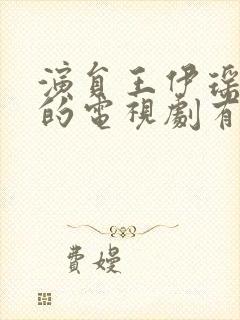 演員王伊瑤
的電視劇有
費嫚